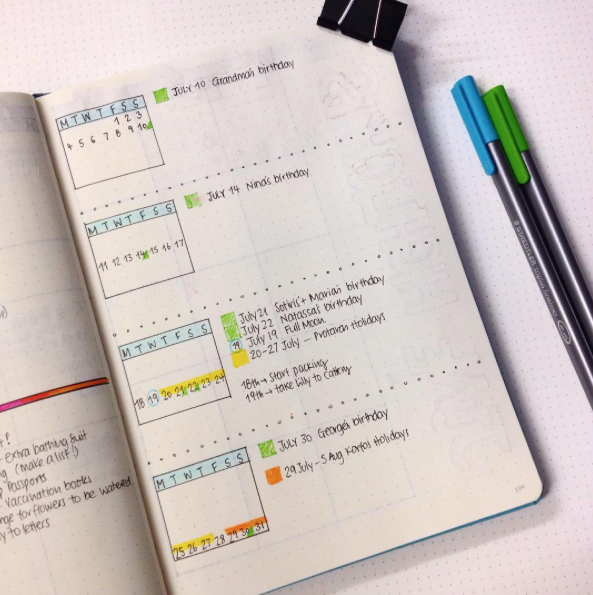 M T W T F S S
1 2 3
4 5 6 7 8 9 10
JULY 10 Grandma's birthday
M T W T F S S
11 12 13 14 15 16 17
JULY 14 Nina's birthday
M T W T F S S
18 19 20 21 22 23 24
July 21 Sotiris + Maria's birthday
July 22 Natassa's birthday
19 July 19 Full Moon
20-27 July - Protaran Holidays
18th → start packing
19th → take Lily to Cattery
M T W T F S S
25 26 27 28 29 30 31
JULY 30 George's birthday
29 July - 5 Aug Korfos Holidays
- extra bathing suit
(make a list!)
Passports
vaccination books
for flowers to be watered
to letters
STAEDTLER triplus fineliner